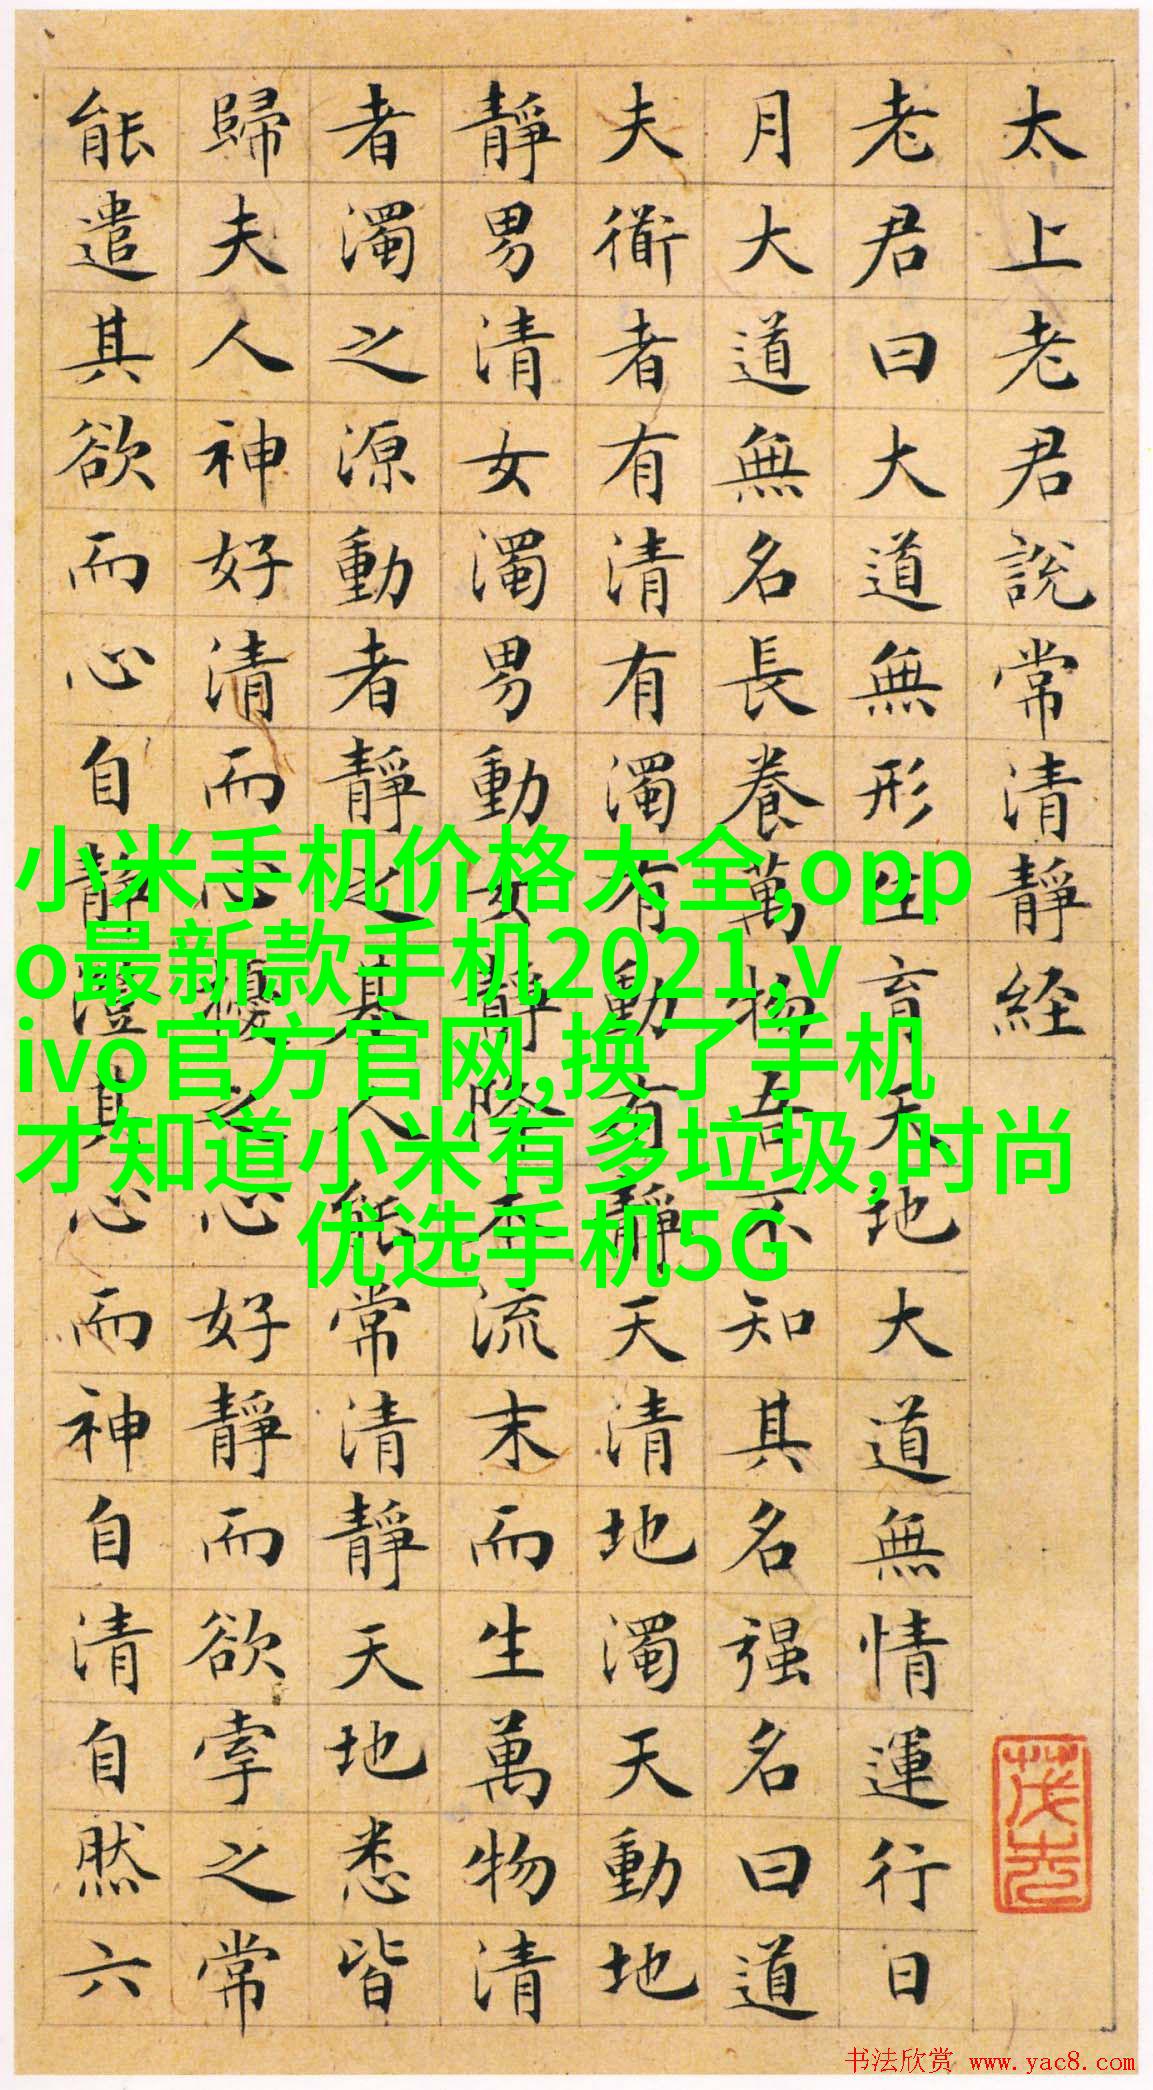 太上老君說常清靜経
老君曰大道無形生育天地大道無情運行日
月大道無名長養萬物吾不知其名强名曰道
夫衜者有清有濁有動有靜天清地濁天動地
靜男清女濁男動女靜降本流末而生萬物清
者濁之源動者靜之基人能常清靜天地悉皆
歸夫人神好清而心擾之心好靜而欲牽之常
能遣其欲而心自靜澄其心而神自清自然六
小米手机价格大全,opp
o最新款手机2021,v
ivo官方官网,换了手机
才知道小米有多垃圾,时尚
优选手机5G
书法欣赏 www.yac8.com